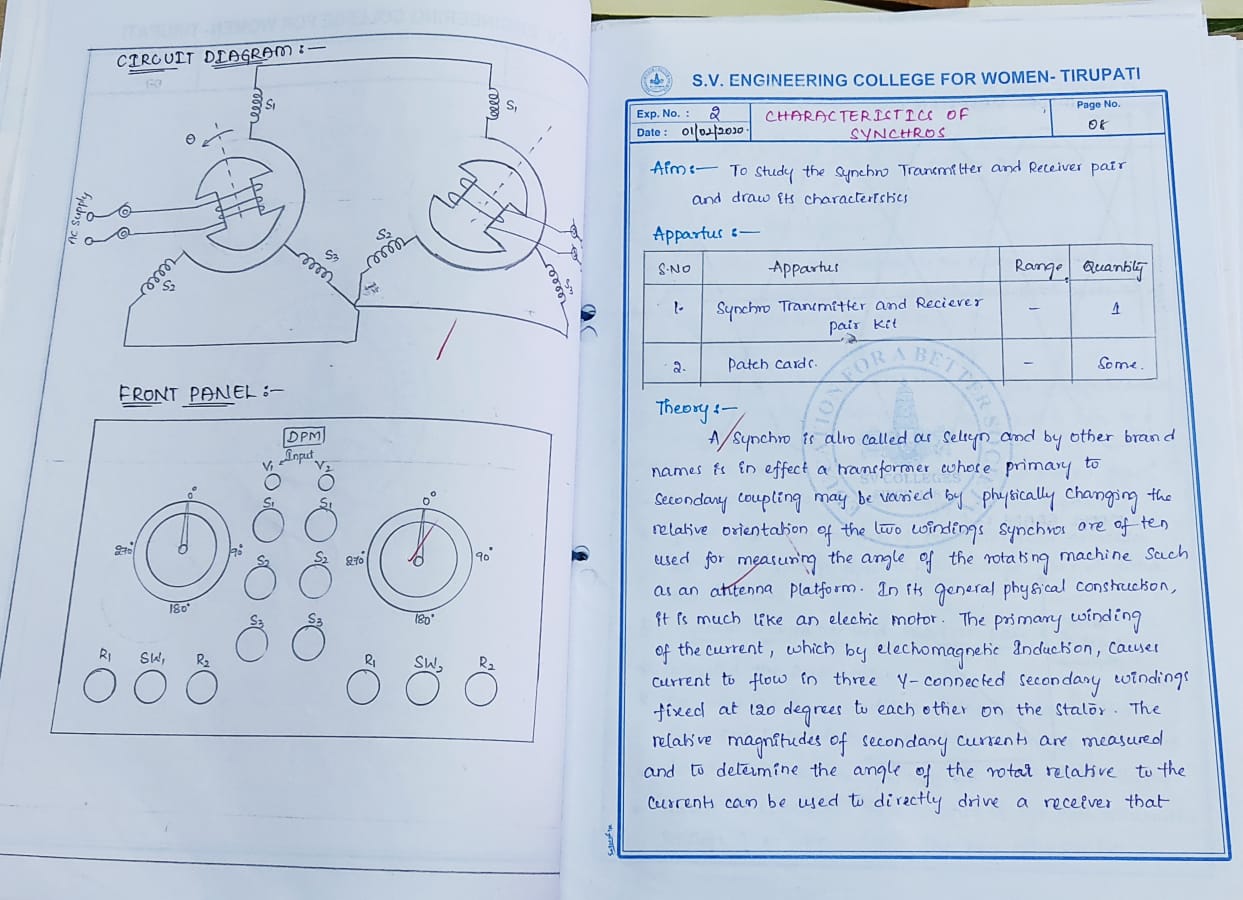 CIRCUIT DIAGRAM :-
S1
S1
θ
AC Supply
S2
S3
S2
S3
FRONT PANEL :-
DPM
Input
V1 V2
S1 S1
S2 S2
S3 S3
0°
270° 90°
180°
0°
270° 90°
180°
R1 SW1 R2
R1 SW2 R2
S.V. ENGINEERING COLLEGE FOR WOMEN- TIRUPATI
Exp. No. : 2
Date :
CHARACTERISTICS OF
SYNCHROS
Page No.
08
Aim:- To study the Synchro Transmitter and Receiver pair
and draw its characteristics
Appartus :-
S.NO Appartus Range Quantity
1. Synchro Transmitter and Reciever pair kit - 1
2. Patch cards. - Some.
Theory :-
A Synchro is also called as Selsyn and by other brand
names is in effect a transformer whose primary to
Secondary coupling may be varied by physically changing the
relative orientation of the two windings Synchros are of ten
used for measuring the angle of the rotating machine Such
as an antenna platform. In its general physical construction,
it is much like an electric motor. The primary winding
of the current, which by electromagnetic Induction, causes
current to flow in three Y-connected secondary windings
fixed at 120 degrees to each other on the stator. The
relative magnitudes of secondary currents are measured
and to determine the angle of the rotar relative to the
currents can be used to directly drive a receiver that